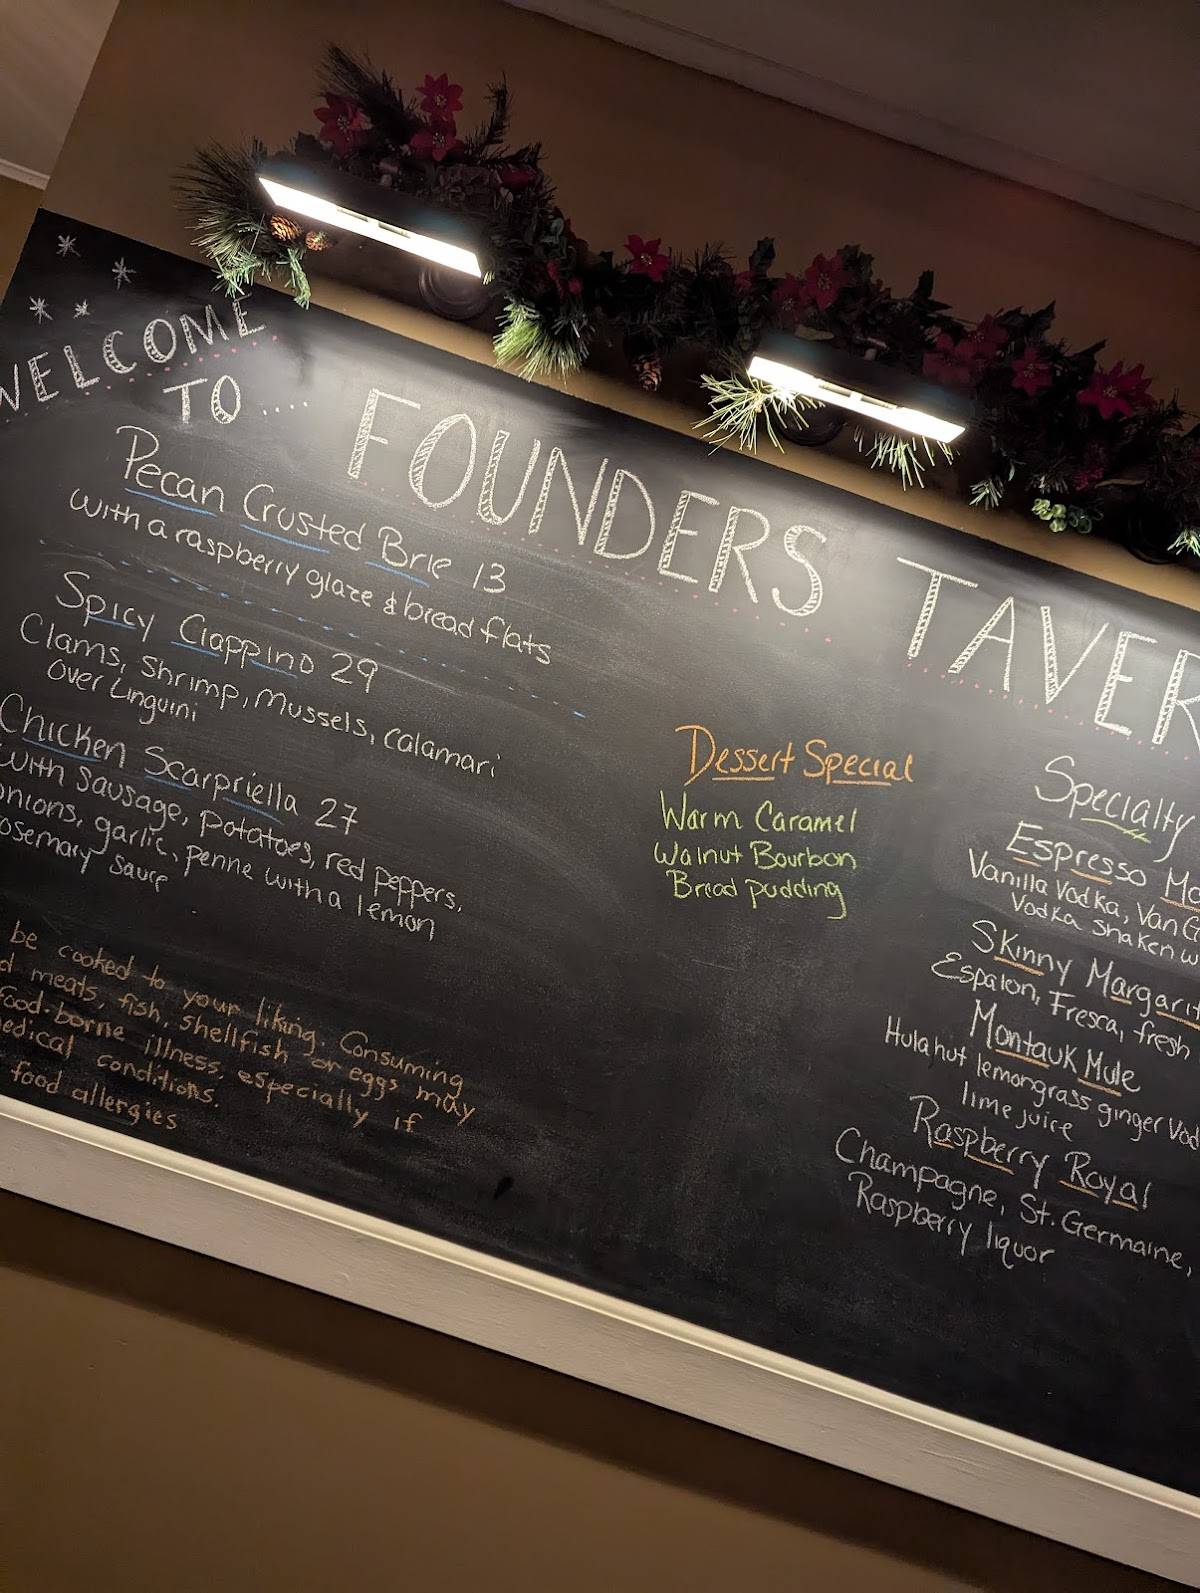 WELCOME
TO ....
FOUNDERS TAVER
Pecan Crusted Brie 13
with a raspberry glaze & bread flats
Spicy Ciappino 29
Clams, Shrimp, Mussels, calamari
over Linguini
Chicken Scarpriella 27
with sausage, potatoes, red peppers,
onions, garlic, penne with a lemon
rosemary sauce
be cooked to your liking. Consuming
d meats, fish, shellfish or eggs may
food-borne illness, especially if
edical conditions.
food allergies
Dessert Special
Warm Caramel
Walnut Bourbon
Bread pudding
Specialty
Espresso Ma
Vanilla Vodka, Van G
Vodka shaken w
Skinny Margarit
Espalon, Fresca, fresh
Montauk Mule
Hula hut lemongrass ginger Vod
lime juice
Raspberry Royal
Champagne, St. Germaine,
Raspberry liquor